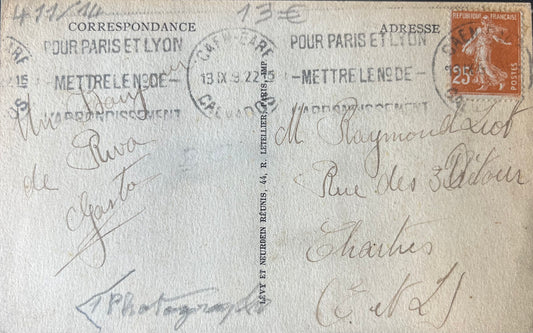 411/14
13€
CORRESPONDANCE
ADRESSE
POUR PARIS ET LYON
METTRE LE No DE
L'ARRONDISSEMENT
CAEN-GARE
13 IX 9.22 15
CALVADOS
POUR PARIS ET LYON
METTRE LE No DE
L'ARRONDISSEMENT
REPUBLIQUE FRANÇAISE
25c
POSTES
Un
de Riva
Gasto
LÉVY ET NEURDEIN RÉUNIS, 44, R. LETELLIER, PARIS-IMP
M Raymond
Rue des 3
Chartres
(E et L)
Photographe